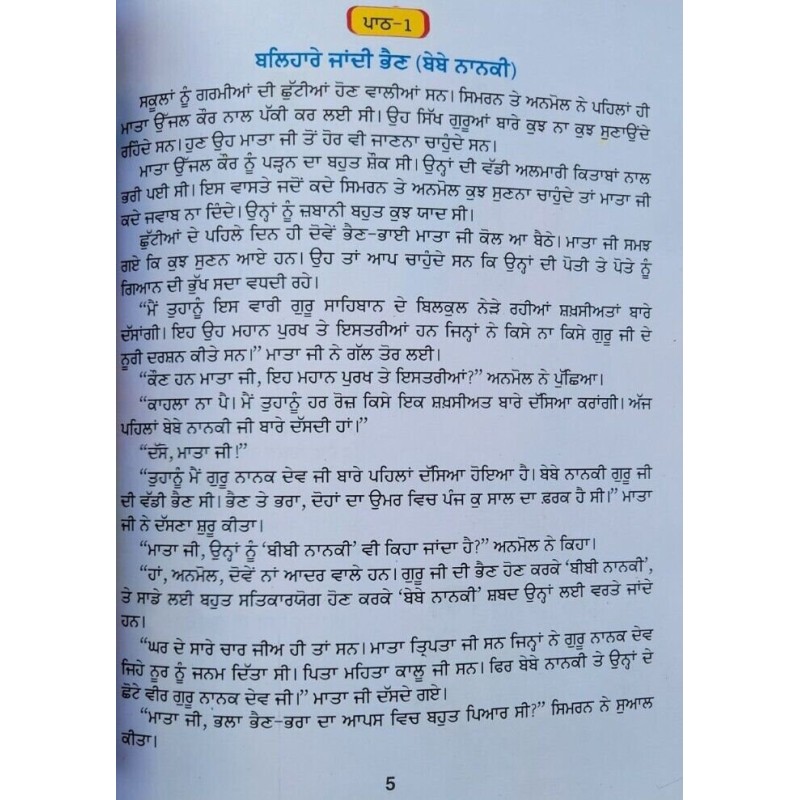 ਪਾਠ-1
ਬਲਿਹਾਰੇ ਜਾਂਦੀ ਭੈਣ (ਬੇਬੇ ਨਾਨਕੀ)
ਸਕੂਲਾਂ ਨੂੰ ਗਰਮੀਆਂ ਦੀ ਛੁੱਟੀਆਂ ਹੋਣ ਵਾਲੀਆਂ ਸਨ। ਸਿਮਰਨ ਤੇ ਅਨਮੋਲ ਨੇ ਪਹਿਲਾਂ ਹੀ
ਮਾਤਾ ਉੱਜਲ ਕੌਰ ਨਾਲ ਪੱਕੀ ਕਰ ਲਈ ਸੀ। ਉਹ ਸਿੱਖ ਗੁਰੂਆਂ ਬਾਰੇ ਕੁਝ ਨਾ ਕੁਝ ਸੁਣਾਉਂਦੇ
ਰਹਿੰਦੇ ਸਨ। ਹੁਣ ਉਹ ਮਾਤਾ ਜੀ ਤੋਂ ਹੋਰ ਵੀ ਜਾਣਨਾ ਚਾਹੁੰਦੇ ਸਨ।
ਮਾਤਾ ਉੱਜਲ ਕੌਰ ਨੂੰ ਪੜ੍ਹਨ ਦਾ ਬਹੁਤ ਸ਼ੌਕ ਸੀ। ਉਨ੍ਹਾਂ ਦੀ ਵੱਡੀ ਅਲਮਾਰੀ ਕਿਤਾਬਾਂ ਨਾਲ
ਭਰੀ ਪਈ ਸੀ। ਇਸ ਵਾਸਤੇ ਜਦੋਂ ਕਦੇ ਸਿਮਰਨ ਤੇ ਅਨਮੋਲ ਕੁਝ ਸੁਣਨਾ ਚਾਹੁੰਦੇ ਤਾਂ ਮਾਤਾ ਜੀ
ਕਦੇ ਜਵਾਬ ਨਾ ਦਿੰਦੇ। ਉਨ੍ਹਾਂ ਨੂੰ ਜ਼ਬਾਨੀ ਬਹੁਤ ਕੁਝ ਯਾਦ ਸੀ।
ਛੁੱਟੀਆਂ ਦੇ ਪਹਿਲੇ ਦਿਨ ਹੀ ਦੋਵੇਂ ਭੈਣ-ਭਾਈ ਮਾਤਾ ਜੀ ਕੋਲ ਆ ਬੈਠੇ। ਮਾਤਾ ਜੀ ਸਮਝ
ਗਏ ਕਿ ਕੁਝ ਸੁਣਨ ਆਏ ਹਨ। ਉਹ ਤਾਂ ਆਪ ਚਾਹੁੰਦੇ ਸਨ ਕਿ ਉਨ੍ਹਾਂ ਦੀ ਪੋਤੀ ਤੇ ਪੋਤੇ ਨੂੰ
ਗਿਆਨ ਦੀ ਭੁੱਖ ਸਦਾ ਵਧਦੀ ਰਹੇ।
“ਮੈਂ ਤੁਹਾਨੂੰ ਇਸ ਵਾਰੀ ਗੁਰੂ ਸਾਹਿਬਾਨ ਦੇ ਬਿਲਕੁਲ ਨੇੜੇ ਰਹੀਆਂ ਸ਼ਖ਼ਸੀਅਤਾਂ ਬਾਰੇ
ਦੱਸਾਂਗੀ। ਇਹ ਉਹ ਮਹਾਨ ਪੁਰਖ ਤੇ ਇਸਤਰੀਆਂ ਹਨ ਜਿਨ੍ਹਾਂ ਨੇ ਕਿਸੇ ਨਾ ਕਿਸੇ ਗੁਰੂ ਜੀ ਦੇ
ਨੂਰੀ ਦਰਸ਼ਨ ਕੀਤੇ ਸਨ।” ਮਾਤਾ ਜੀ ਨੇ ਗੱਲ ਤੋਰ ਲਈ।
“ਕੌਣ ਹਨ ਮਾਤਾ ਜੀ, ਇਹ ਮਹਾਨ ਪੁਰਖ ਤੇ ਇਸਤਰੀਆਂ?” ਅਨਮੋਲ ਨੇ ਪੁੱਛਿਆ।
“ਕਾਹਲਾ ਨਾ ਪੈ। ਮੈਂ ਤੁਹਾਨੂੰ ਹਰ ਰੋਜ਼ ਕਿਸੇ ਇਕ ਸ਼ਖ਼ਸੀਅਤ ਬਾਰੇ ਦੱਸਿਆ ਕਰਾਂਗੀ। ਅੱਜ
ਪਹਿਲਾਂ ਬੇਬੇ ਨਾਨਕੀ ਜੀ ਬਾਰੇ ਦੱਸਦੀ ਹਾਂ।”
“ਦੱਸੋ, ਮਾਤਾ ਜੀ!”
“ਤੁਹਾਨੂੰ ਮੈਂ ਗੁਰੂ ਨਾਨਕ ਦੇਵ ਜੀ ਬਾਰੇ ਪਹਿਲਾਂ ਦੱਸਿਆ ਹੋਇਆ ਹੈ। ਬੇਬੇ ਨਾਨਕੀ ਗੁਰੂ ਜੀ
ਦੀ ਵੱਡੀ ਭੈਣ ਸੀ। ਭੈਣ ਤੇ ਭਰਾ, ਦੋਹਾਂ ਦਾ ਉਮਰ ਵਿਚ ਪੰਜ ਕੁ ਸਾਲ ਦਾ ਫ਼ਰਕ ਹੈ ਸੀ।” ਮਾਤਾ
ਜੀ ਨੇ ਦੱਸਣਾ ਸ਼ੁਰੂ ਕੀਤਾ।
“ਮਾਤਾ ਜੀ, ਉਨ੍ਹਾਂ ਨੂੰ ‘ਬੀਬੀ ਨਾਨਕੀ’ ਵੀ ਕਿਹਾ ਜਾਂਦਾ ਹੈ?” ਅਨਮੋਲ ਨੇ ਕਿਹਾ।
“ਹਾਂ, ਅਨਮੋਲ, ਦੋਵੇਂ ਨਾਂ ਆਦਰ ਵਾਲੇ ਹਨ। ਗੁਰੂ ਜੀ ਦੀ ਭੈਣ ਹੋਣ ਕਰਕੇ ‘ਬੀਬੀ ਨਾਨਕੀ’,
ਤੇ ਸਾਡੇ ਲਈ ਬਹੁਤ ਸਤਿਕਾਰਯੋਗ ਹੋਣ ਕਰਕੇ ‘ਬੇਬੇ ਨਾਨਕੀ’ ਸ਼ਬਦ ਉਨ੍ਹਾਂ ਲਈ ਵਰਤੇ ਜਾਂਦੇ
ਹਨ।
“ਘਰ ਦੇ ਸਾਰੇ ਚਾਰ ਜੀਅ ਹੀ ਤਾਂ ਸਨ। ਮਾਤਾ ਤ੍ਰਿਪਤਾ ਜੀ ਸਨ ਜਿਨ੍ਹਾਂ ਨੇ ਗੁਰੂ ਨਾਨਕ ਦੇਵ
ਜਿਹੇ ਨੂਰ ਨੂੰ ਜਨਮ ਦਿੱਤਾ ਸੀ। ਪਿਤਾ ਮਹਿਤਾ ਕਾਲੂ ਜੀ ਸਨ। ਫਿਰ ਬੇਬੇ ਨਾਨਕੀ ਤੇ ਉਨ੍ਹਾਂ ਦੇ
ਛੋਟੇ ਵੀਰ ਗੁਰੂ ਨਾਨਕ ਦੇਵ ਜੀ।” ਮਾਤਾ ਜੀ ਦੱਸਦੇ ਗਏ।
“ਮਾਤਾ ਜੀ, ਭਲਾ ਭੈਣ-ਭਰਾ ਦਾ ਆਪਸ ਵਿਚ ਬਹੁਤ ਪਿਆਰ ਸੀ?” ਸਿਮਰਨ ਨੇ ਸੁਆਲ
ਕੀਤਾ।
5